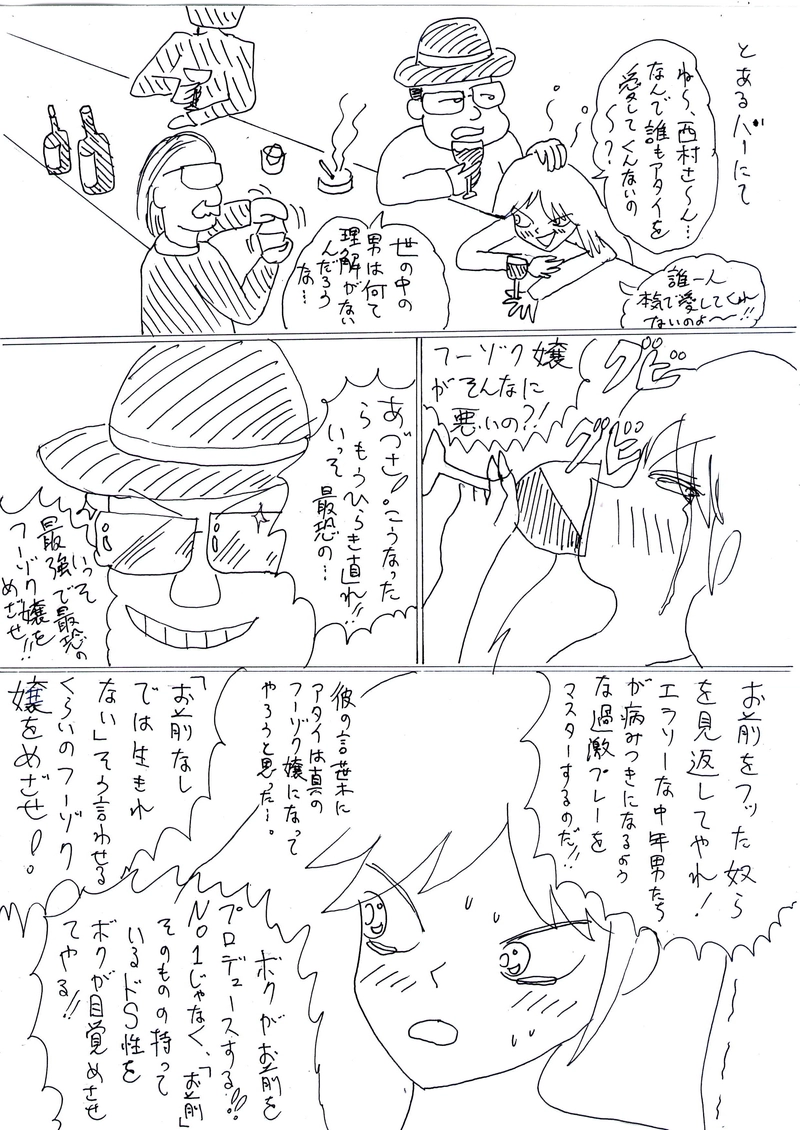 とあるバーにて
ね〜、西村さ〜ん…
なんで誰もアタイを
愛してくんないの
〜?
誰一人
本気で愛してくれ
ないのよ〜!!
世の中の
男は何て
理解がない
んだろう
な…
フーゾク嬢
がそんなに
悪いの?!
グビ
グビ
あづさ!こうなった
らもうひらき直れ!!
いっそ最恐の…
いっそ
最強で最恐の
フーゾク嬢を
めざせ!!
お前をフッた奴ら
を見返してやれ!
エラソーな中年男たち
が病みつきになるよう
な過激プレーを
マスターするのだ!!
彼の言葉に
アタイは真の
フーゾク嬢になって
やろうと思った…。
「お前なし
では生きれ
ない」そう言わせる
くらいのフーゾク
嬢をめざせ!
ボクがお前を
プロデュースする!!
No1じゃなく、「お前」
そのものの持って
いるドS性を
ボクが目覚めさせ
てやる!!